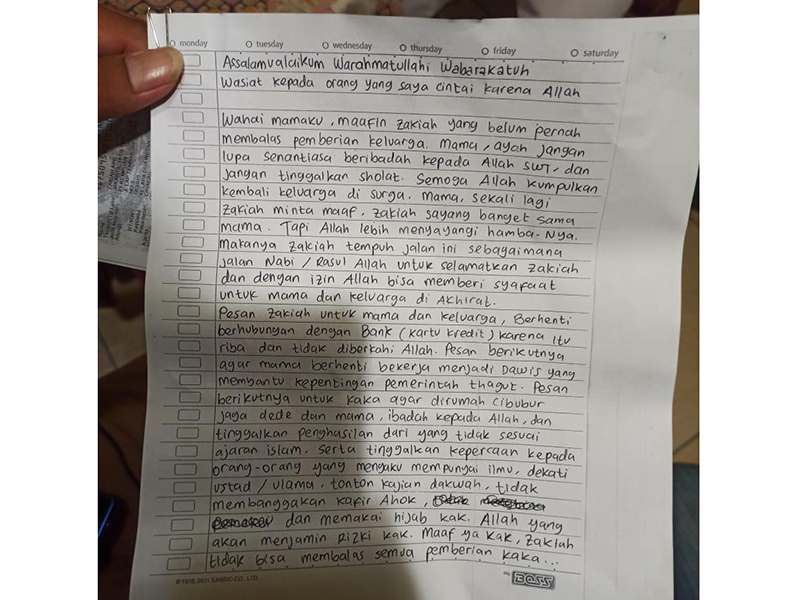 monday tuesday wednesday thursday friday saturday
Assalamualaikum Warahmatullahi Wabarakatuh
Wasiat kepada orang yang saya cintai karena Allah
Wahai mamaku, maafin zakiah yang belum pernah
membalas pemberian keluarga. Mama, ayah jangan
lupa senantiasa beribadah kepada Allah SWT, dan
jangan tinggalkan sholat. Semoga Allah kumpulkan
kembali keluarga di surga. Mama, sekali lagi
zakiah minta maaf. zakiah sayang banget sama
mama. Tapi Allah lebih menyayangi hamba-Nya.
Makanya zakiah tempuh jalan ini sebagaimana
jalan Nabi / Rasul Allah untuk selamatkan zakiah
dan dengan izin Allah bisa memberi syafaat
untuk mama dan keluarga di Akhirat.
Pesan zakiah untuk mama dan keluarga, Berhenti
berhubungan dengan Bank (kartu kredit) karena itu
riba dan tidak diberkahi Allah. Pesan berikutnya
agar mama berhenti bekerja menjadi Dawis yang
membantu kepentingan pemerintah thagut. Pesan
berikutnya untuk kaka agar dirumah cibubur
jaga dede dan mama, ibadah kepada Allah, dan
tinggalkan penghasilan dari yang tidak sesuai
ajaran islam. serta tinggalkan kepercaan kepada
orang-orang yang mengaku mempunyai ilmu, dekati
ustad / ulama. tonton kajian dakwah, tidak
membanggakan kafir Ahok,
dan memakai hijab kak. Allah yang
akan menjamin Rizki kak. Maaf ya kak, zakiah
tidak bisa membalas semua pemberian kaka...
SANRIO CO., LTD.
BOSS